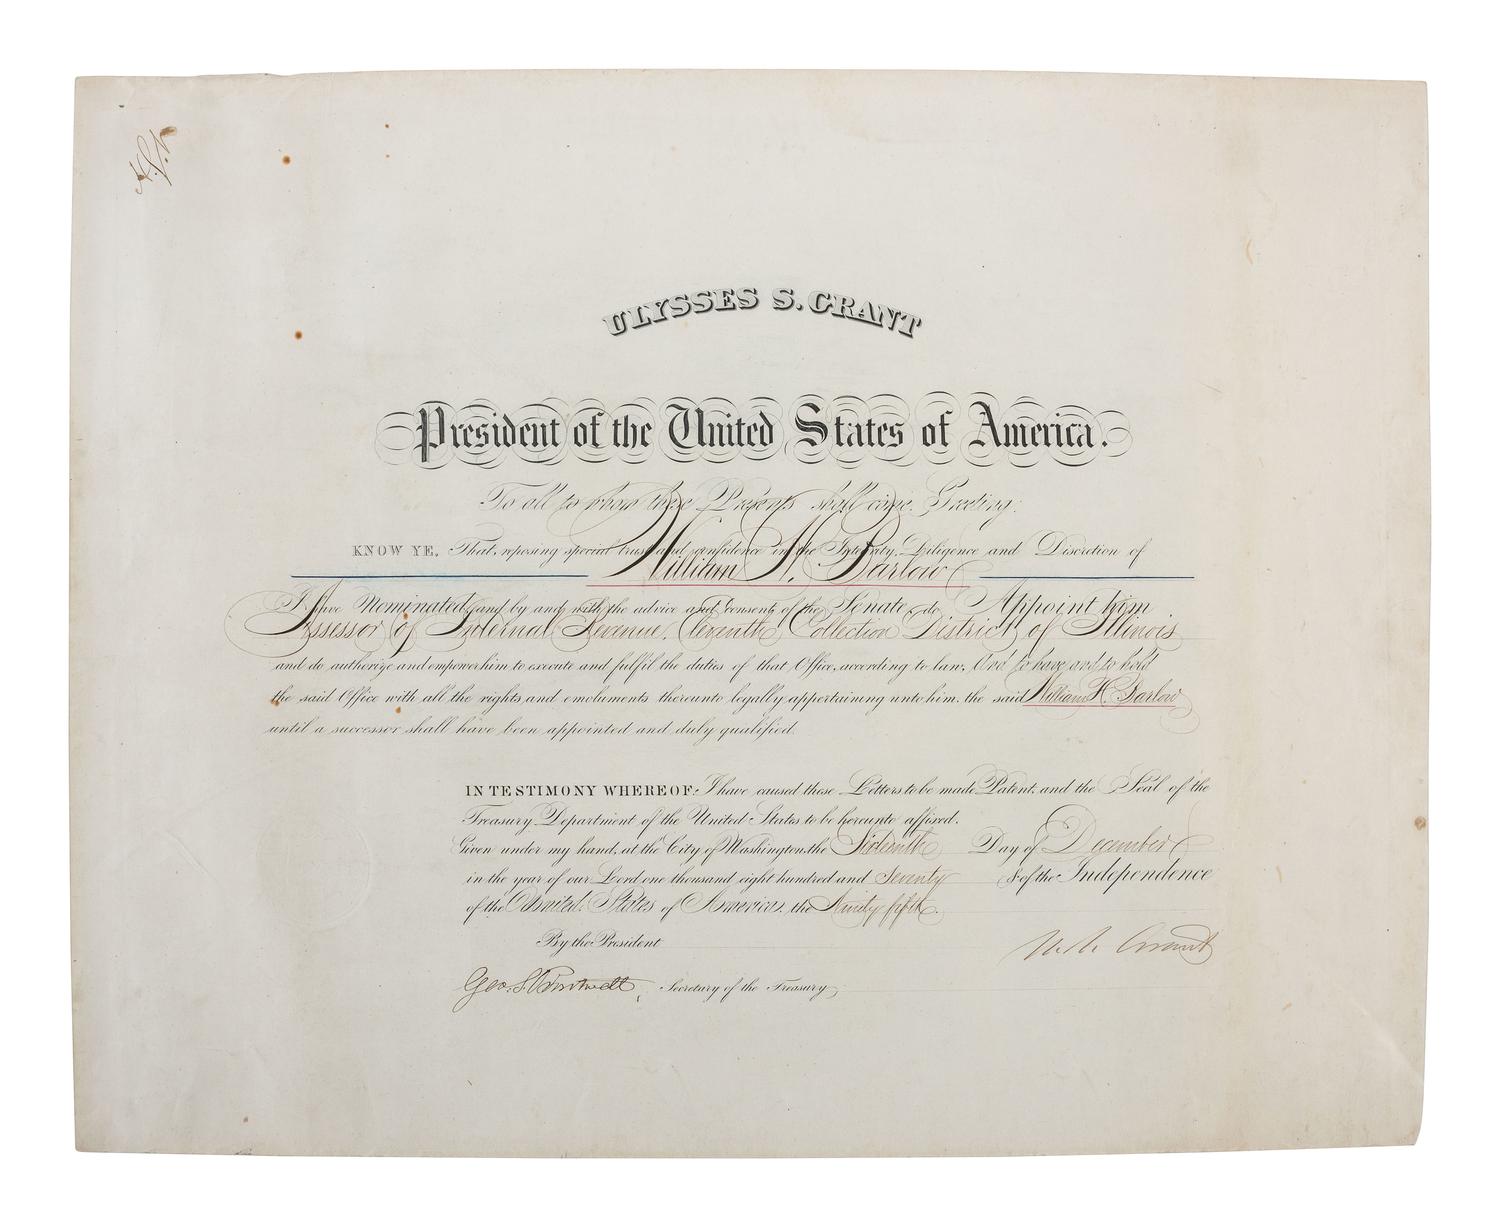 ULYSSES S. GRANT
President of the United States of America.
To all to whom these Presents shall come, Greeting:
KNOW YE, That, reposing special trust and confidence in the Integrity, Diligence and Discretion of
William H. Barlow
I have Nominated, and by and with the advice and consent of the Senate, do Appoint him
Assessor of Internal Revenue, Eleventh Collection District of Illinois
and do authorize and empower him to execute and fulfil the duties of that Office, according to law; And to have and to hold
the said Office with all the rights and emoluments thereunto legally appertaining unto him, the said William H. Barlow
until a successor shall have been appointed and duly qualified.
IN TESTIMONY WHEREOF, I have caused these Letters to be made Patent, and the Seal of the
Treasury Department of the United States to be hereunto affixed.
Given under my hand, at the City of Washington, the Sixteenth Day of December
in the year of our Lord one thousand eight hundred and Seventy & of the Independence
of the United States of America, the Ninety fifth.
By the President
U.S. Grant
Geo. S. Boutwell, Secretary of the Treasury